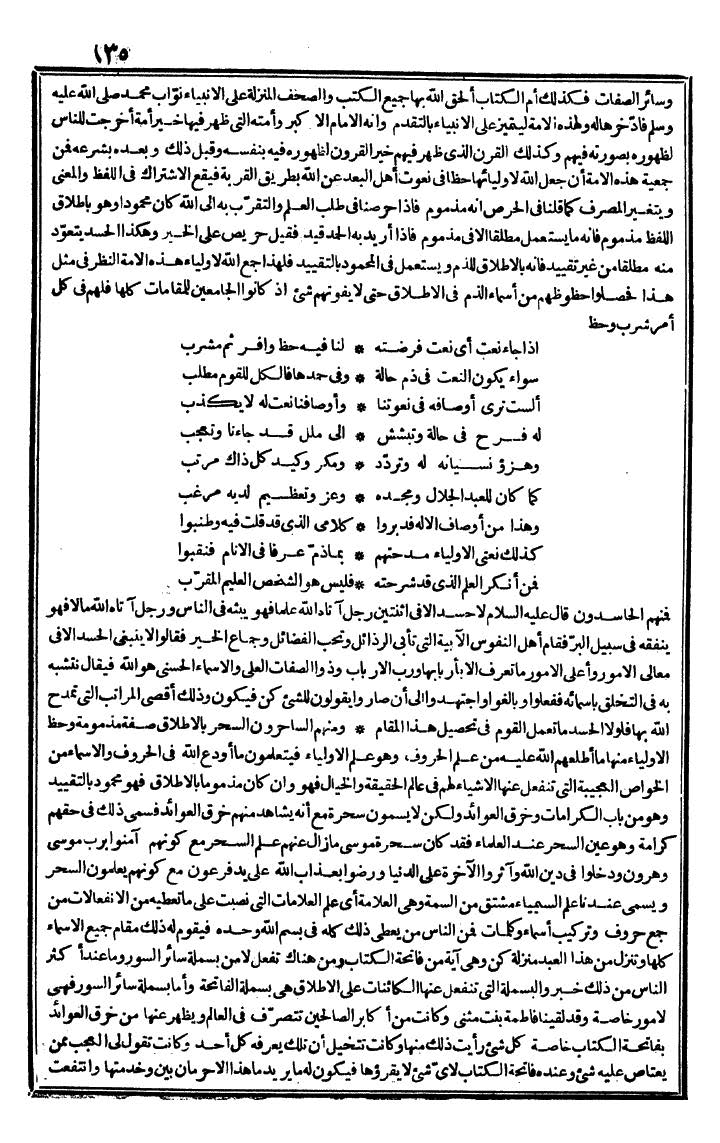 ١٣٥
وسائر الصفات فكذلك أم الكتاب ألحق الله بها جميع الكتب والصحف المنزلة على الانبياء نوّاب محمد صلى الله عليه
وسلم فادّخرها له ولهذه الامة ليتميز على الانبياء بالتقدم وانه الامام الاكبر وأمته التى ظهر فيها خير أمة أخرجت للناس
لظهوره بصورته فيهم وكذلك القرن الذى ظهر فيهم خير القرون لظهوره فيه بنفسه وقبل ذلك وبعده بشرعه فمن
جمعية هذه الامة أن جعل الله لاوليائها حظا فى نعوت أهل البعد عن الله بطريق القربة فيقع الاشتراك فى اللفظ والمعنى
ويتغير المصرف كما قلنا فى الحرص انه مذموم فاذا حرصنا فى طلب العلم والتقرّب به الى الله كان محمودا وهو باطلاق
اللفظ مذموم فانه ما يستعمل مطلقا الا فى مذموم فاذا أريد به الحمد قيد فقيل حريص على الخير وهكذا الحسد يتعوّذ
منه مطلقا من غير تقييد فانه بالاطلاق للذم ويستعمل فى المحمود بالتقييد فلهذا جمع الله لاولياء هذه الامة النظر فى مثل
هذا فحصلوا حظوظهم من أسماء الذم فى الاطلاق حتى لا يفوتهم شئ اذ كانوا الجامعين للمقامات كلها فلهم فى كل
أمر شرب وحظ
اذا جاء نعت أى نعت فرضته * لنا فيه حظ وافر ثم مشرب
سواء يكون النعت فى ذم حالة * وفى حمدها فالكل للقوم مطلب
ألست ترى أوصافه فى نعوتنا * وأوصافنا نعت له لا يكذب
له فرح فى حالة وتبشش * الى ملل قد جاءنا وتعجب
وهزؤ نسيانه له وتردّد * ومكر وكيد كل ذاك مرتب
كما كان للعبد الجلال ومجده * وعز وتعظيم لديه مرغب
وهذا من أوصاف الاله فدبروا * كلامى الذى قد قلت فيه وطنبوا
كذلك نعتى الاولياء مدحتهم * بما ذمّ عرفا فى الانام فنقبوا
فمن أنكر العلم الذى قد شرحته * فليس هو الشخص العليم المقرّب
فمنهم الحاسدون قال عليه السلام لا حسد الا فى اثنتين رجل آتاه الله علما فهو يبثه فى الناس ورجل آتاه الله مالا فهو
ينفقه فى سبيل البرّ فقام أهل النفوس الآبية التى تأبى الرذائل وتحب الفضائل وجماع الخير فقالوا لا ينبغى الحسد الا فى
معالى الامور وأعلى الامور ما تعرف الا بأربابها ورب الارباب وذو الصفات العلى والاسماء الحسنى هو الله فيقال نتشبه
به فى التخلق باسمائه ففعلوا وبالغوا واجتهدوا الى أن صاروا يقولون للشئ كن فيكون وذلك أقصى المراتب التى تمدح
الله بها فلولا الحسد ما تعمل القوم فى تحصيل هذا المقام * ومنهم الساحرون السحر بالاطلاق صفة مذمومة وحظ
الاولياء منها ما أطلعهم الله عليه من علم الحروف وهو علم الاولياء فيتعلمون ما أودع الله فى الحروف والاسماء من
الخواص العجيبة التى تنفعل عنها الاشياء لهم فى عالم الحقيقة والخيال فهو وان كان مذموما بالاطلاق فهو محمود بالتقييد
وهو من باب الكرامات وخرق العوائد ولكن لا يسمون سحرة مع أنه يشاهد منهم خرق العوائد فسمى ذلك فى حقهم
كرامة وهو عين السحر عند العلماء فقد كان سحرة موسى ما زال عنهم علم السحر مع كونهم آمنوا برب موسى
وهرون ودخلوا فى دين الله وآثروا الآخرة على الدنيا ورضوا بعذاب الله على يد فرعون مع كونهم يعلمون السحر
ويسمى عندنا علم السيمياء مشتق من السمة وهى العلامة أى علم العلامات التى نصبت على ما تعطيه من الانفعالات من
جمع حروف وتركيب أسماء وكلمات فمن الناس من يعطى ذلك كله فى بسم الله وحده فيقوم له ذلك مقام جميع الاسماء
كلها وتنزل من هذا العبد منزلة كن وهى آية من فاتحة الكتاب ومن هناك تفعل لا من بسملة سائر السور وما عند أكثر
الناس من ذلك خبر والبسملة التى تنفعل عنها الكائنات على الاطلاق هى بسملة الفاتحة وأما بسملة سائر السور فهى
لامور خاصة وقد لقينا فاطمة بنت مثنى وكانت من أكابر الصالحين تتصرّف فى العالم ويظهر عنها من خرق العوائد
بفاتحة الكتاب خاصة كل شئ رأيت ذلك منها وكانت تتخيل أن تلك يعرفه كل أحد وكانت تقول لى العجب ممن
يعتاص عليه شئ وعنده فاتحة الكتاب لاىّ شئ لا يقرؤها فيكون له ما يريد ما هذا الا حرمان بين وخدمتها وانتفعت